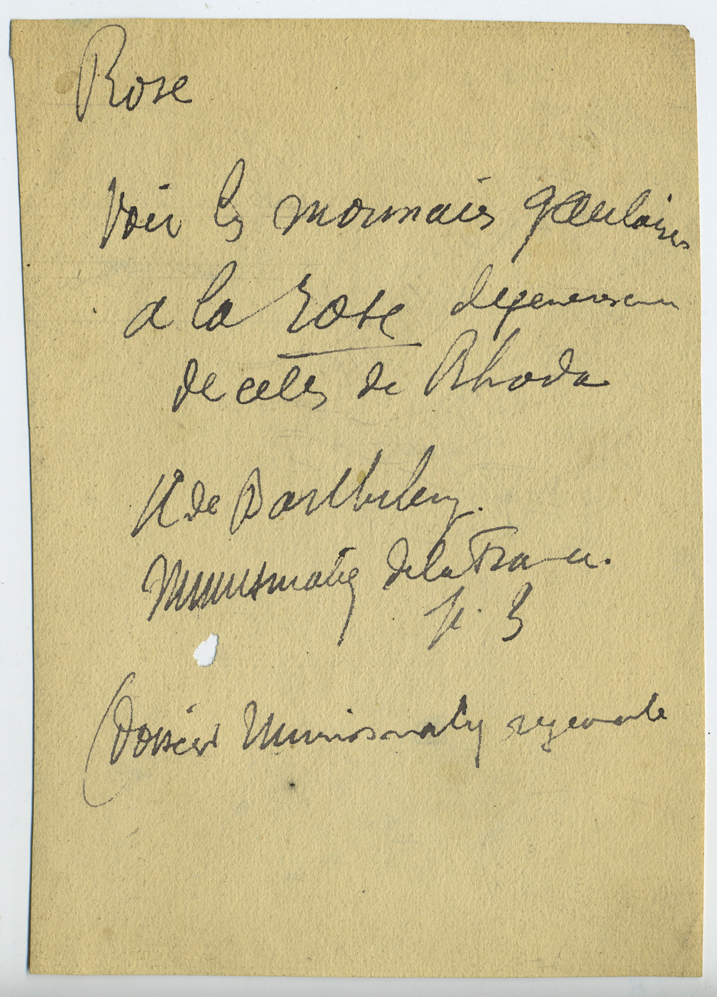 Rose
Voir les monnaies gauloises
a la rose
de celles de Rhoda
de Barthelemy.
Numismatiq de la France.
p. 3
(Dossier Numismatiq regionale